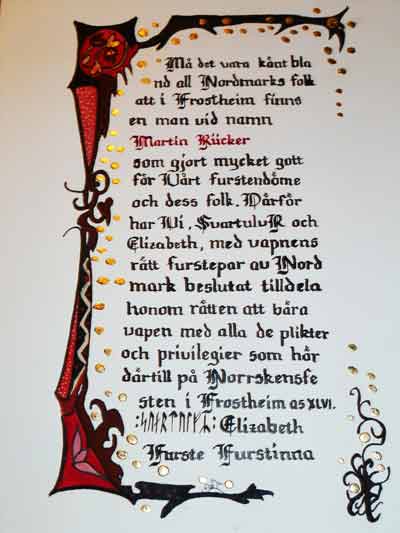 Må det vara känt bla
nd all Nordmarks folk
att i Frostheim finns
en man vid namn
Martin Rücker
som gjort mycket gott
för Vårt furstendöme
och dess folk. Därför
har Vi, SvartulvR och
Elizabeth, med vapnens
rätt furstepar av Nord
mark beslutat tilldela
honom rätten att bära
vapen med alla de plikter
och privilegier som hör
därtill på Norrskensfe
sten i Frostheim as XLVI.
Elizabeth
Furste Furstinna